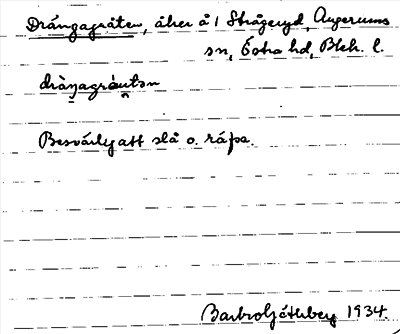 Drängagråten, åker å 1 Strågeryd, Augerums
sn, Östra hd, Blek. l.
dràŋagráutən
Besvärlig att slå o. räfsa.
Barbro Götherg 1934.